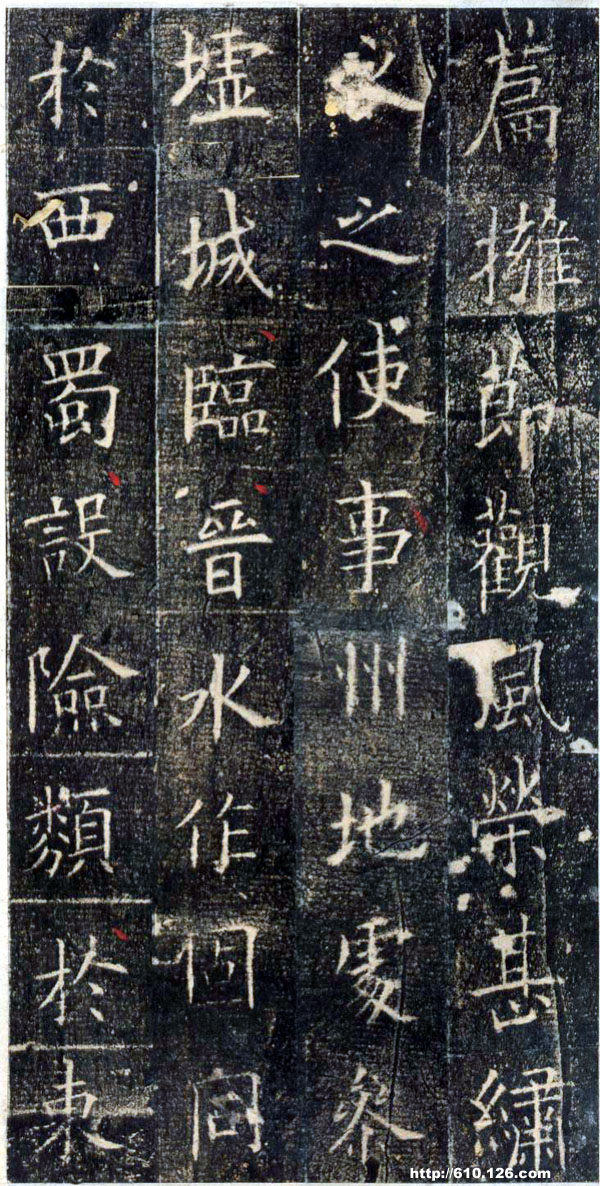 篇擁節觀風榮甚繡
之使事州地處參
墟城臨晉水作固同
於西蜀設險類於東
http://610.126.com